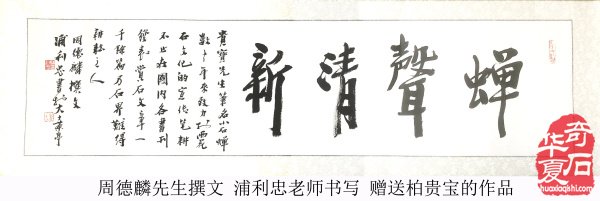 蝉聲清新
貴寶先生筆名小石蟬
數十年來致力於雨花
石文化的宣傳笔耕
不止在國内各書刊
發表賞石文章一
千餘篇乃石界難得
耕耘之人
周德麟撰文
浦利忠書於
奇石
华夏
huaxiaqishi.com
周德麟先生撰文 浦利忠老师书写 赠送柏贵宝的作品